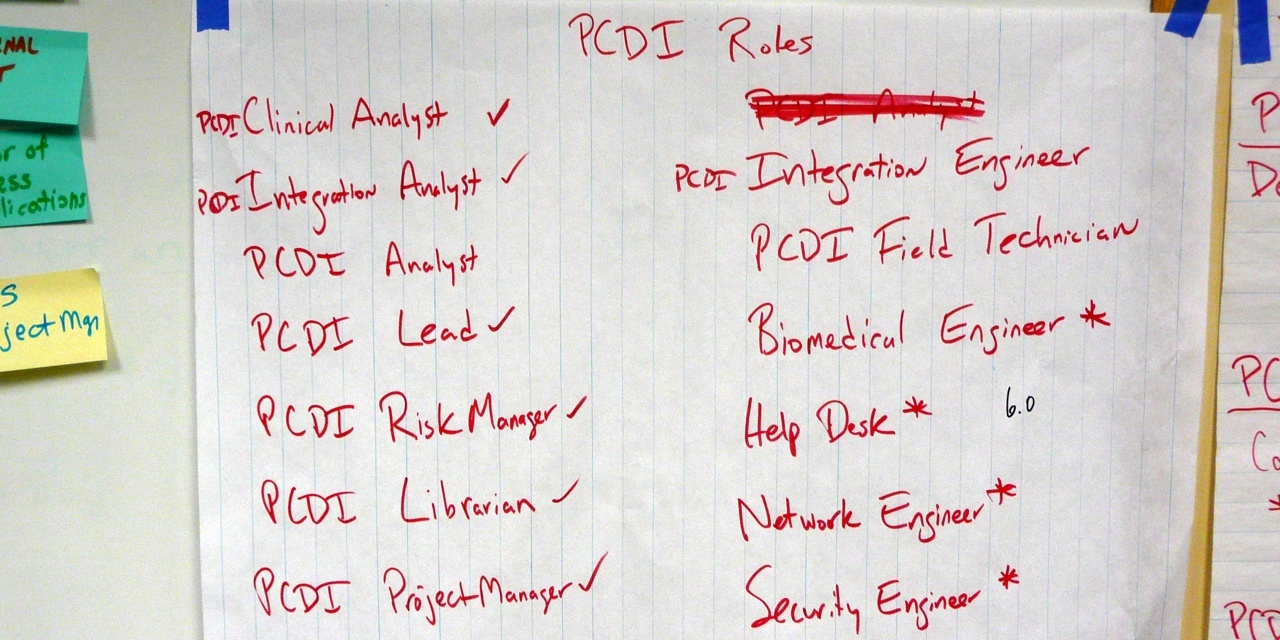 PCDI Roles
PCDI Clinical Analyst ✓
PCDI Integration Analyst ✓
PCDI Analyst
PCDI Lead ✓
PCDI Risk Manager ✓
PCDI Librarian ✓
PCDI Project Manager ✓
PCDI Analyst
PCDI Integration Engineer
PCDI Field Technician
Biomedical Engineer *
Help Desk * 6.0
Network Engineer *
Security Engineer *